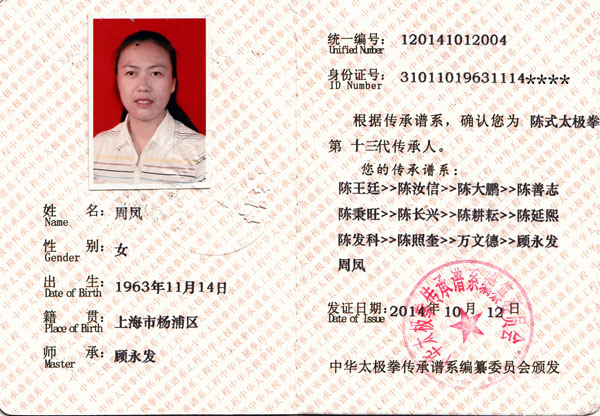 统一编号: 120141012004
Unified Number
身份证号: 31011019631114****
ID Number
根据传承谱系，确认您为 陈式太极拳
第 十三代传承人。
您的传承谱系：
陈王廷>>陈汝信>>陈大鹏>>陈善志
陈秉旺>>陈长兴>>陈耕耘>>陈延熙
陈发科>>陈照奎>>万文德>>顾永发
周凤
发证日期: 2014年 10月 12日
Date of Issue
中华太极拳传承谱系编纂委员会颁发
姓 名: 周凤
Name
性 别: 女
Gender
出 生: 1963年11月14日
Date of Birth
籍 贯: 上海市杨浦区
Place of Birth
师 承: 顾永发
Master
中华太极拳传承谱系编纂委员会